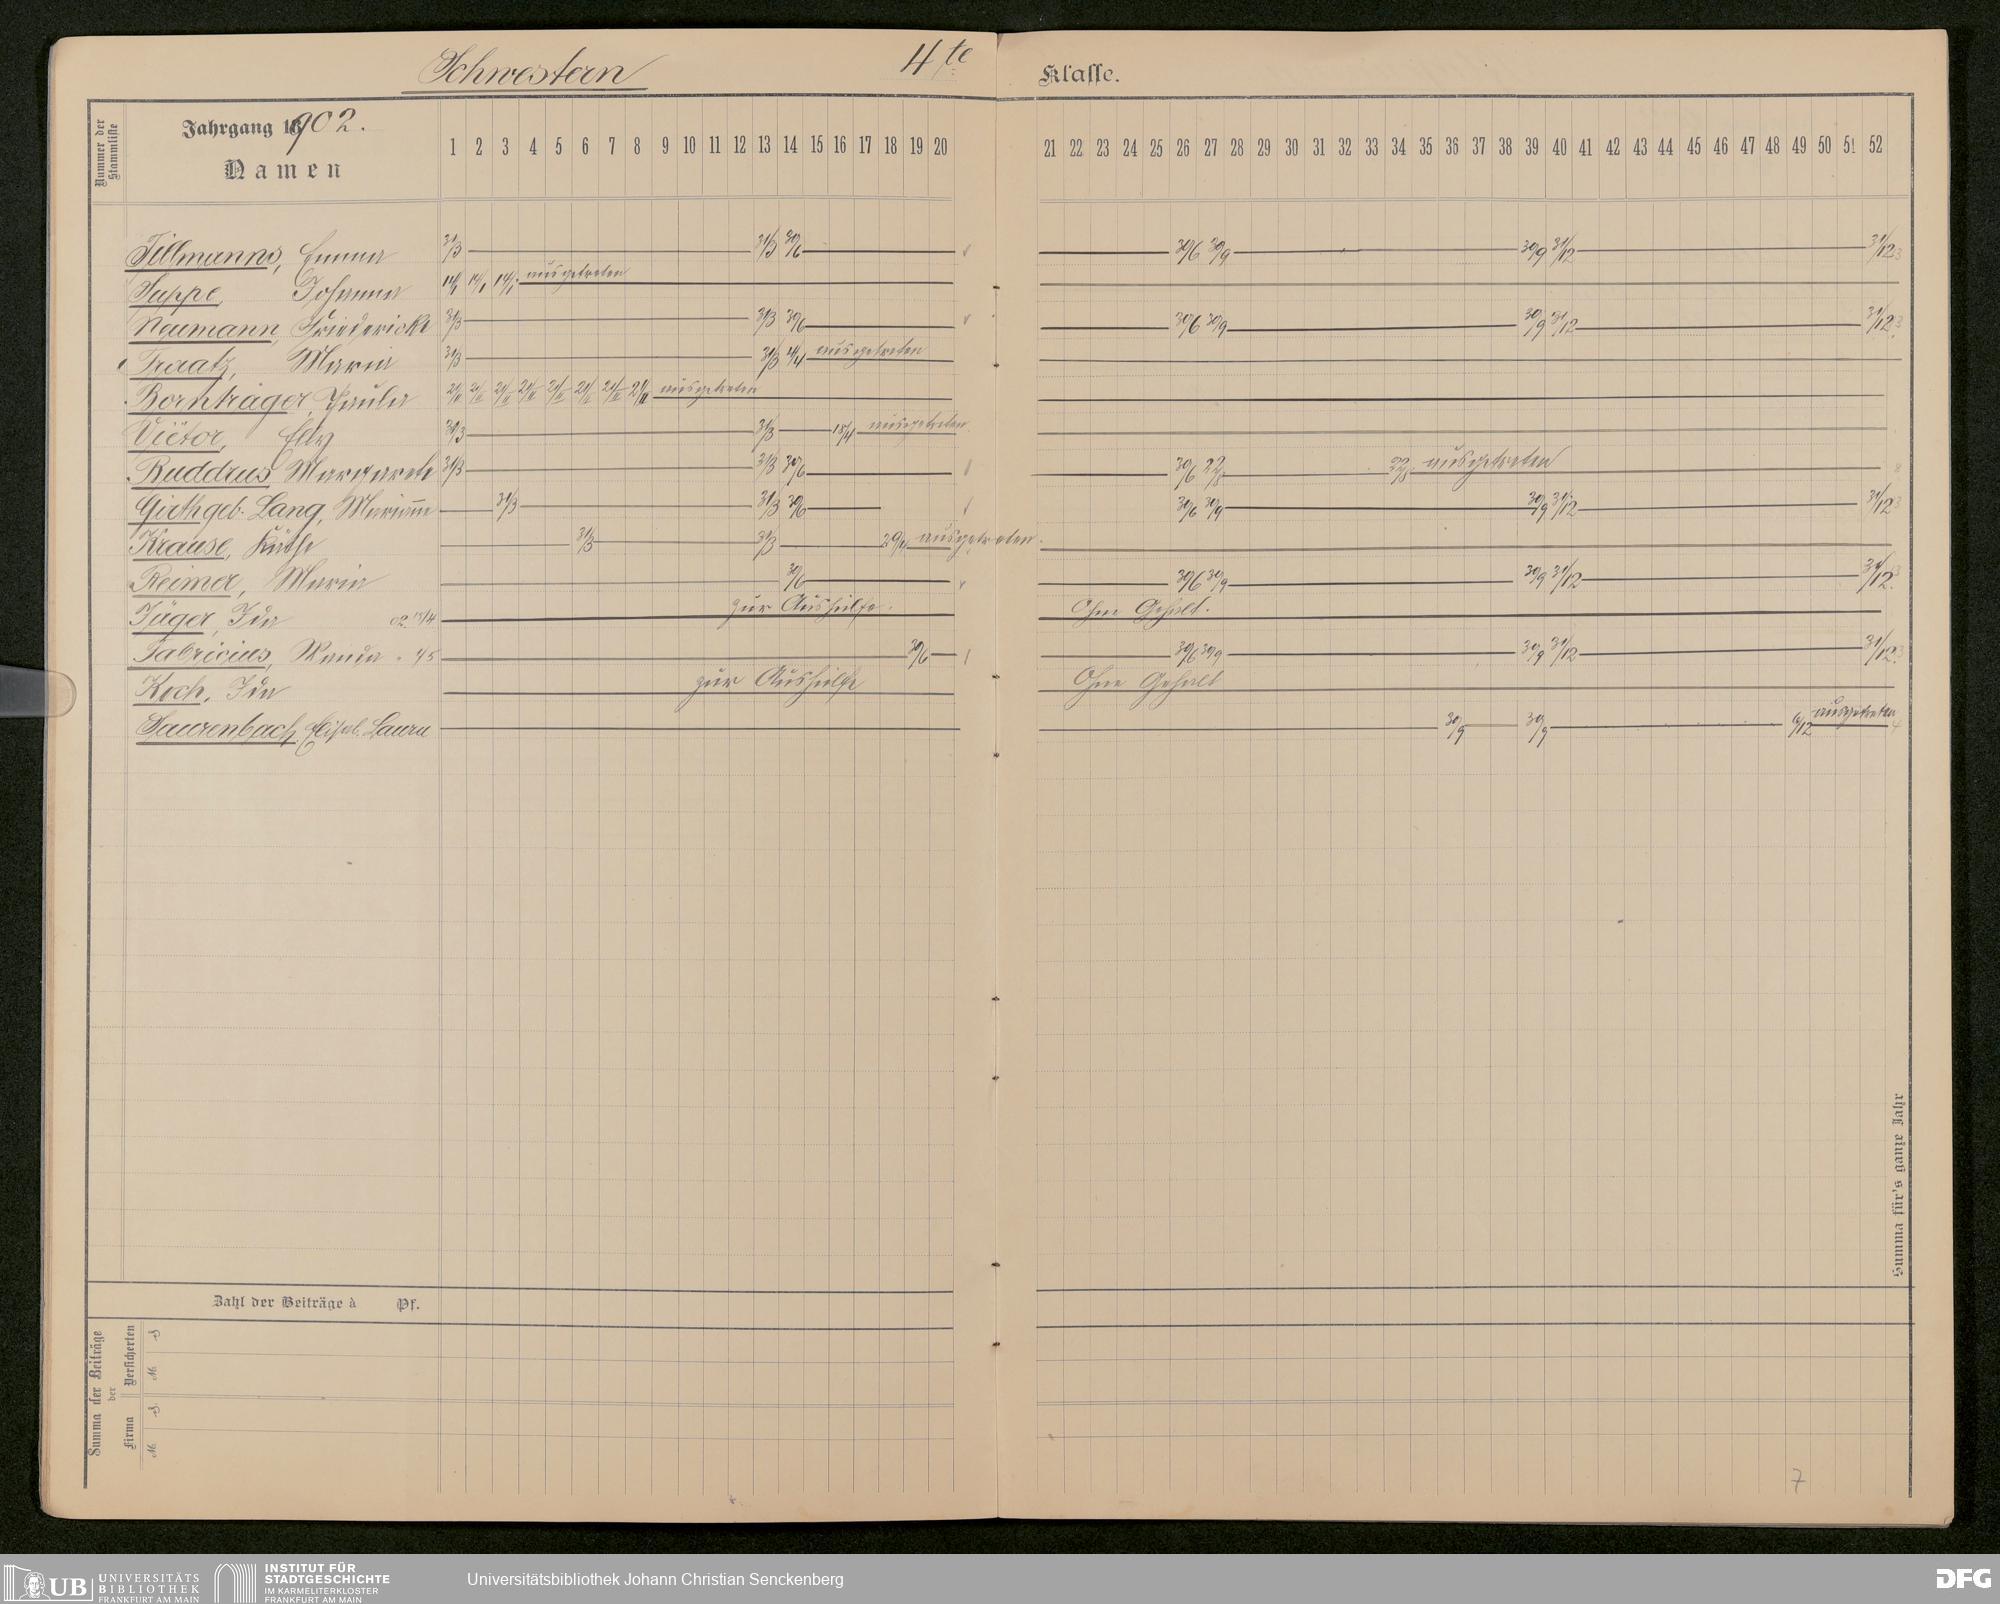 Schwestern 4te Klasse.
Nummer der Stammliste
Jahrgang 1902.
Namen
1 2 3 4 5 6 7 8 9 10 11 12 13 14 15 16 17 18 19 20 21 22 23 24 25 26 27 28 29 30 31 32 33 34 35 36 37 38 39 40 41 42 43 44 45 46 47 48 49 50 51 52
Tillmanns, Emma 31/3 31/3 30/6 30/6 30/9 30/9 31/12 31/12 3
Suppe, Johanna 14/1 14/1 14/1 ausgetreten
Naumann, Friedericke 31/3 31/3 30/6 30/6 30/9 30/9 31/12 31/12 3
Traatz, Maria 31/3 31/3 4/4 ausgetreten
Bornträger, Paula 21/II 21/II 21/II 21/II 21/II 21/II 21/II 21/II ausgetreten
Viëtor, Elly 31/3 31/3 18/4 ausgetreten
Ruddrus, Margarete 31/3 31/3 30/6 30/6 22/8 22/8 ausgetreten 8
Girth geb. Lang, Mariane 31/3 31/3 30/6 30/6 30/9 30/9 31/12 31/12 3
Krause, Käthe 31/3 31/3 29/4 ausgetreten.
Reimer, Maria 30/6 30/6 30/9 30/9 31/12 31/12 3
Jäger, Ida 02 15/4 zur Aushülfe. Ohne Gehalt.
Fabricius, Wanda " 4/5 30/6 30/6 30/9 30/9 31/12 31/12 3
Koch, Ida zur Aushülfe Ohne Gehalt
Saurenbach, Elisab. Laura 30/9 30/9 6/12 ausgetreten 4
Summa für's ganze Jahr
Zahl der Beiträge à Pf.
Summa der Beiträge
der
Versicherten
Firma
M. S.
M. S.
7
UB UNIVERSITÄTS
BIBLIOTHEK
FRANKFURT AM MAIN
INSTITUT FÜR
STADTGESCHICHTE
IM KARMELITERKLOSTER
FRANKFURT AM MAIN
Universitätsbibliothek Johann Christian Senckenberg
DFG